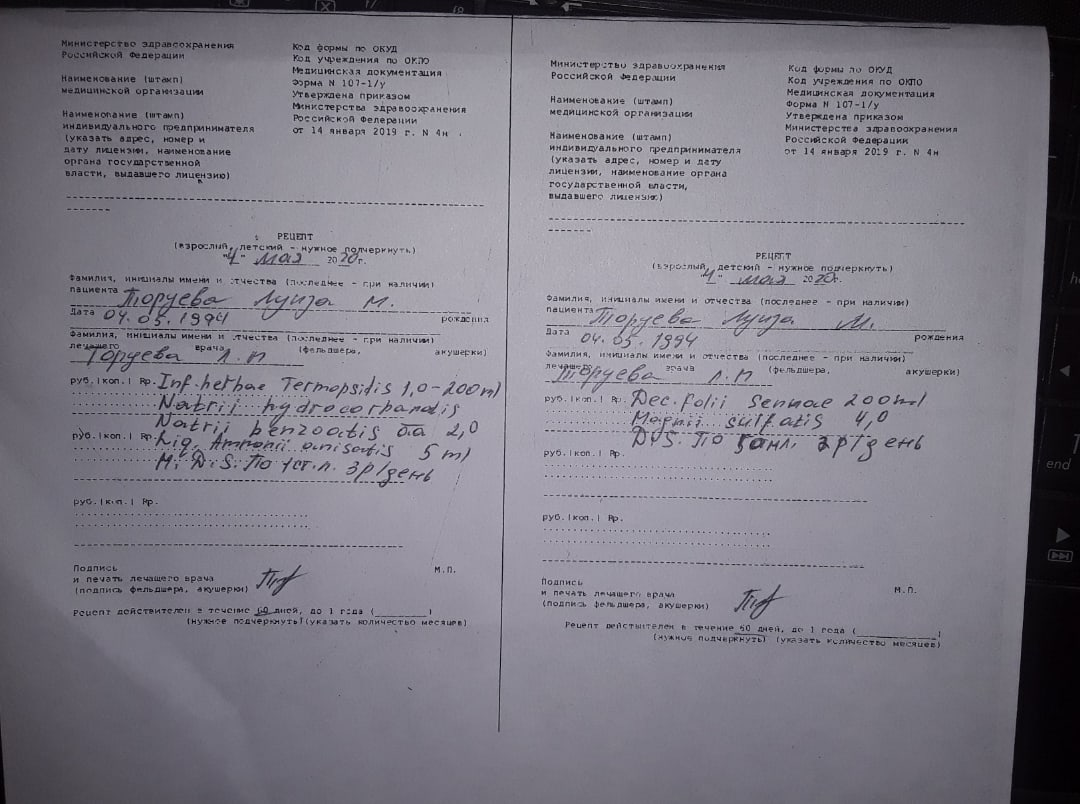 Министерство здравоохранения
Российской Федерации
Наименование (штамп)
медицинской организации
Наименование (штамп)
индивидуального предпринимателя
(указать адрес, номер и
дату лицензии, наименование
органа государственной
власти, выдавшего лицензию)
Код формы по ОКУД
Код учреждения по ОКПО
Медицинская документация
Форма N 107-1/у
Утверждена приказом
Министерства здравоохранения
Российской Федерации
от 14 января 2019 г. N 4н
РЕЦЕПТ
(взрослый, детский - нужное подчеркнуть)
"4" мая 2020г.
Фамилия, инициалы имени и отчества (последнее - при наличии)
пациента Торуева Луиза М.
Дата 04.05.1994 рождения
Фамилия, инициалы имени и отчества (последнее - при наличии)
лечащего врача (фельдшера, акушерки)
Торуева Л.П
руб.|коп.| Rp. Inf. herbae Termopsidis 1,0-200ml
Natrii hydrocarbonatis
Natrii benzoatis āā 2,0
руб.|коп.| Rp. Liq. Ammonii anisatis 5 ml
M.D.S. По 1 ст.л. 3 р/день
руб.|коп.| Rp.
Подпись
и печать лечащего врача
(подпись фельдшера, акушерки)
М.П.
Рецепт действителен в течение 60 дней, до 1 года (________)
(нужное подчеркнуть)(указать количество месяцев)
Министерство здравоохранения
Российской Федерации
Наименование (штамп)
медицинской организации
Наименование (штамп)
индивидуального предпринимателя
(указать адрес, номер и дату
лицензии, наименование органа
государственной власти,
выдавшего лицензию)
Код формы по ОКУД
Код учреждения по ОКПО
Медицинская документация
Форма N 107-1/у
Утверждена приказом
Министерства здравоохранения
Российской Федерации
от 14 января 2019 г. N 4н
РЕЦЕПТ
(взрослый, детский - нужное подчеркнуть)
"4" мая 2020г.
Фамилия, инициалы имени и отчества (последнее - при наличии)
пациента Торуева Луиза М.
Дата 04.05.1994 рождения
Фамилия, инициалы имени и отчества (последнее - при наличии)
лечащего врача (фельдшера, акушерки)
Торуева Л.П
руб.|коп.| Rp. Dec. folii Sennae 200ml
Magnii sulfatis 4,0
D.S. По 3 р/день
руб.|коп.| Rp.
руб.|коп.| Rp.
Подпись
и печать лечащего врача
(подпись фельдшера, акушерки)
М.П.
Рецепт действителен в течение 60 дней, до 1 года (________)
(нужное подчеркнуть) (указать количество месяцев)
end